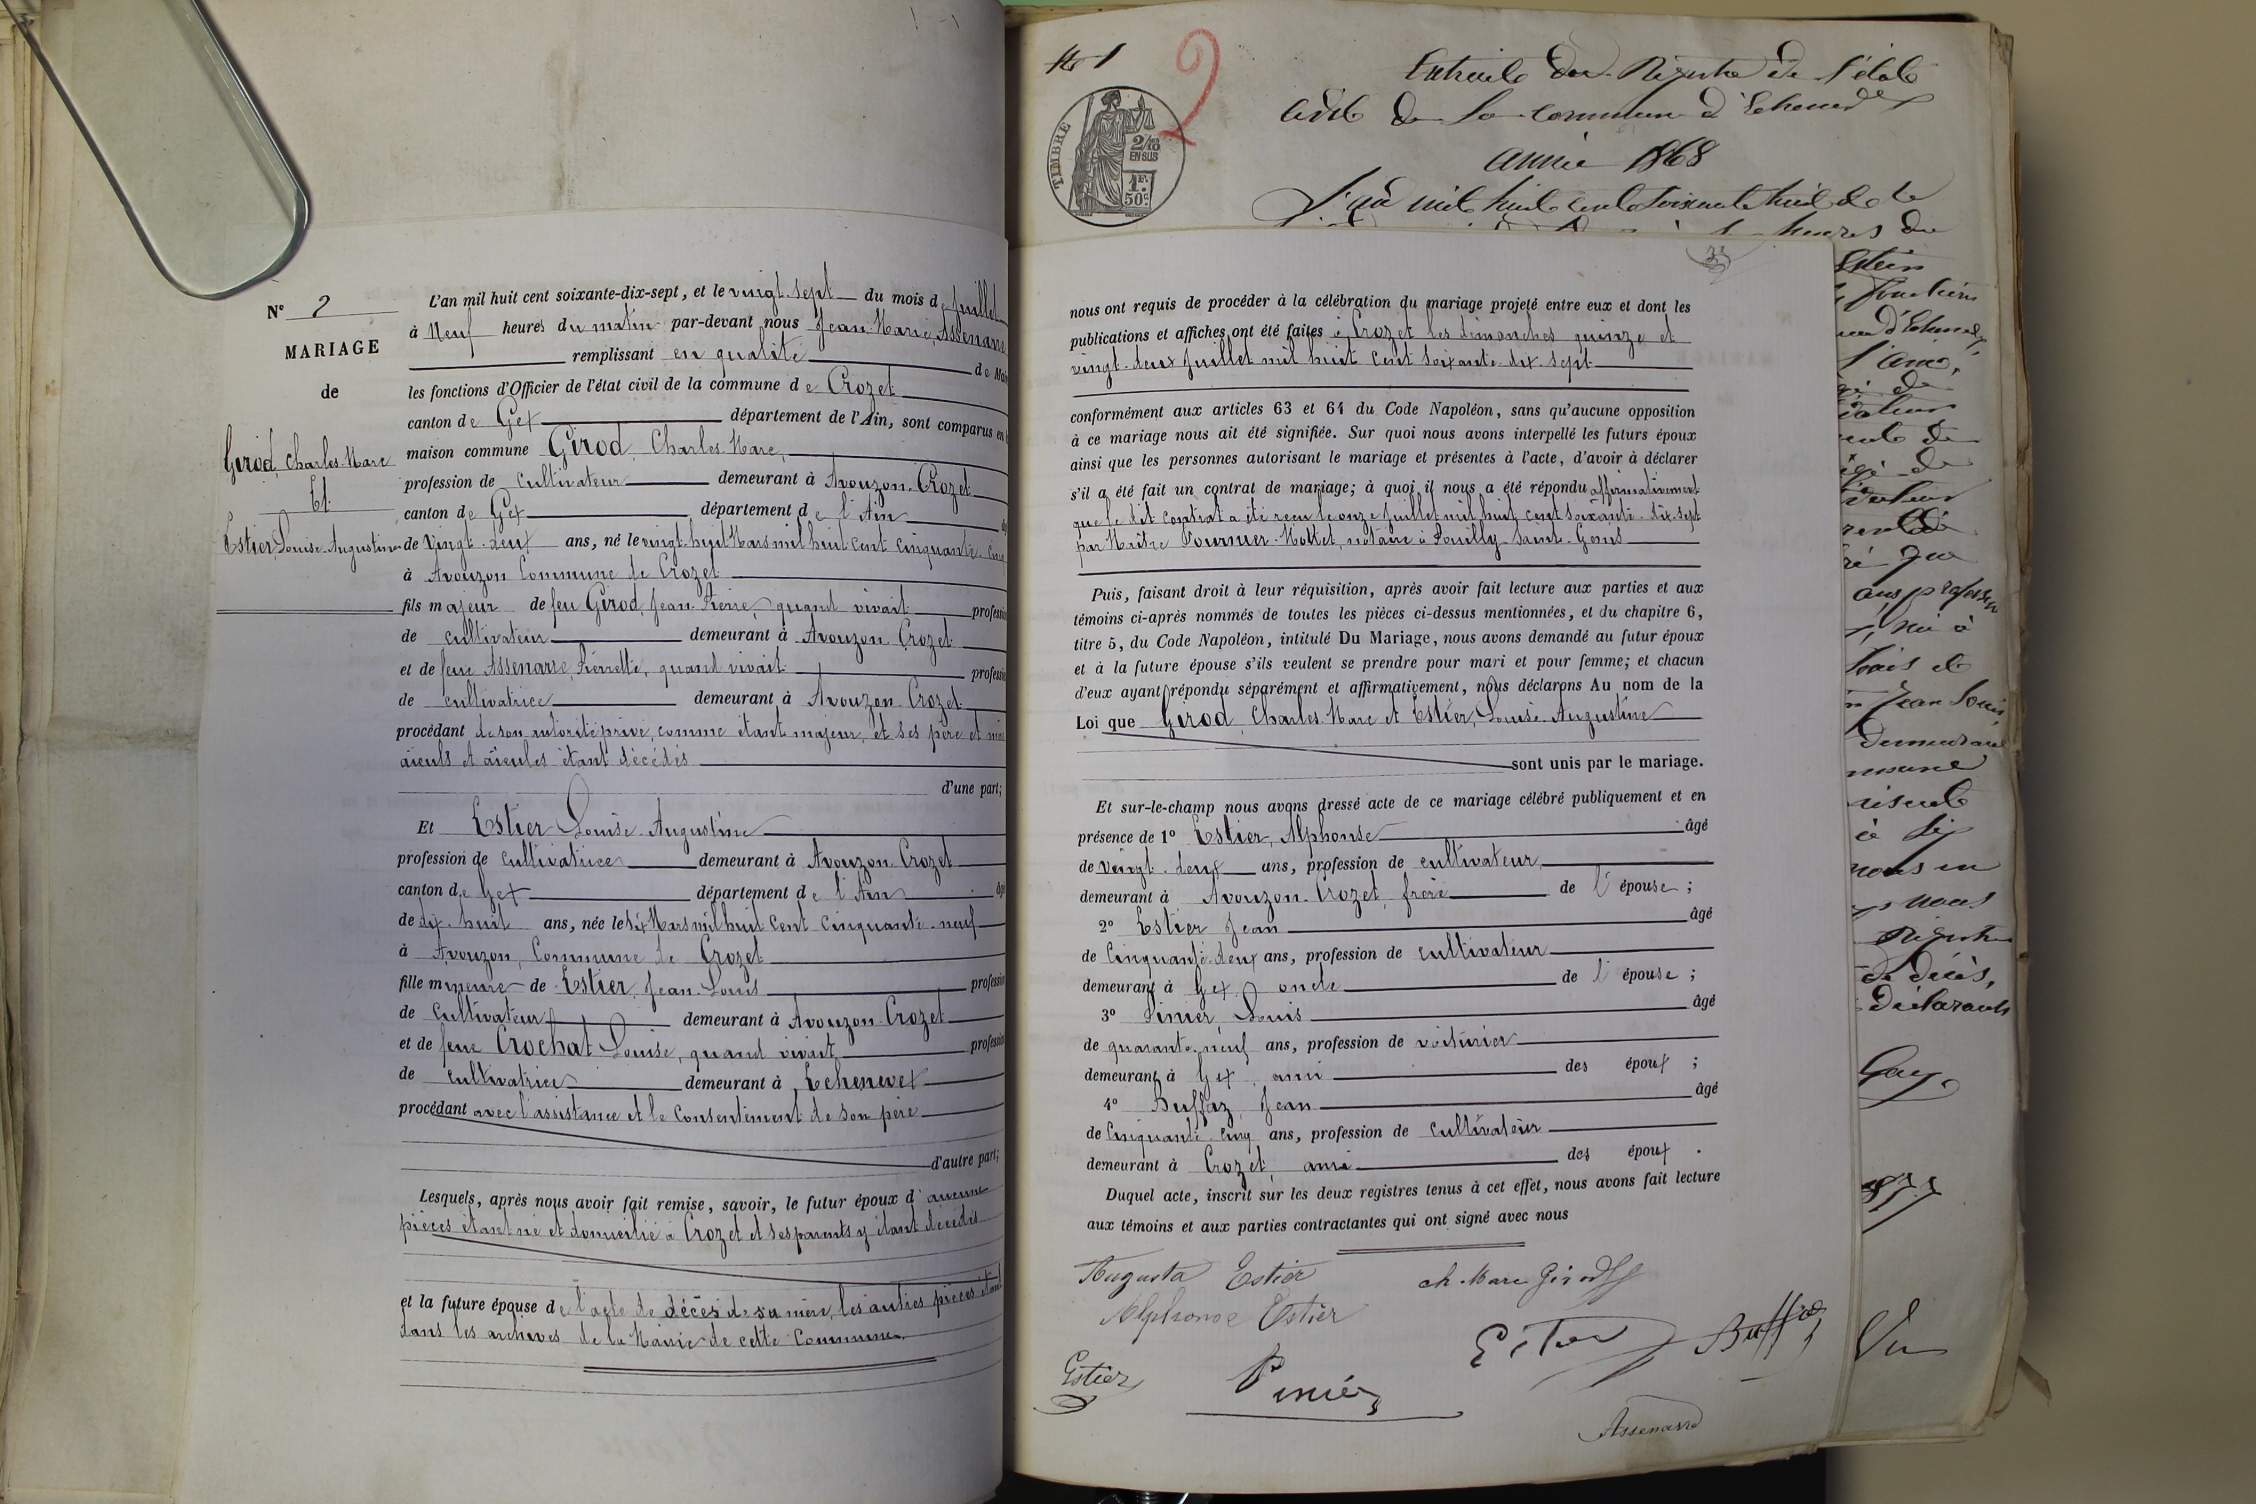 N° 2
MARIAGE
de
Girod, Charles-Marc
Et
Estier, Louise-Augustine
L'an mil huit cent soixante-dix-sept, et le vingt-sept du mois de Juillet
à Neuf heures du matin par-devant nous Jean-Marie, Assenare
remplissant en qualité de Mai
les fonctions d'Officier de l'état civil de la commune de Crozet
canton de Gex département de l'Ain, sont comparus en
maison commune Girod, Charles-Marc,
profession de cultivateur demeurant à Avouzon-Crozet
canton de Gex département de l'Ain
de Vingt-deux ans, né le vingt-huit Mars mil huit cent cinquante-cinq
à Avouzon Commune de Crozet
fils majeur de feu Girod, Jean-Pierre, quand vivait profession
de cultivateur demeurant à Avouzon-Crozet
et de feue Assenare, Pierrette, quand vivait profession
de cultivatrice demeurant à Avouzon-Crozet
procédant de son autorité privé, comme étant majeur, et ses père et
aïeuls et aïeules étant décédés
d'une part;
Et Estier Louise-Augustine
profession de cultivatrice demeurant à Avouzon-Crozet
canton de Gex département de l'Ain
de dix-huit ans, née le six Mars mil huit cent cinquante-neuf
à Avouzon, Commune de Crozet
fille mineure de Estier, Jean-Louis profession
de cultivateur demeurant à Avouzon-Crozet
et de feue Crochat Louise, quand vivait profession
de cultivatrice demeurant à Echenevex
procédant avec l'assistance et le Consentement de son père
d'autre part;
Lesquels, après nous avoir fait remise, savoir, le futur époux d'aucune
pièces étant né et domicilié à Crozet et ses parents y étant décédés
et la future épouse de l'acte de décès de sa mère, les autres pièces étant
dans les archives de la Mairie de cette Commune.
N° 1
2
TIMBRE
2/10
EN SUS
1 F.
50 c.
Extrait du Registre de l'état
civil de la commune d'Echenevex
année 1868
L'an mil huit cent soixante huit et le
heures du
nous ont requis de procéder à la célébration du mariage projeté entre eux et dont les
publications et affiches ont été faites à Crozet les dimanches quinze et
vingt-deux Juillet mil huit cent soixante-dix-sept
conformément aux articles 63 et 64 du Code Napoléon, sans qu'aucune opposition
à ce mariage nous ait été signifiée. Sur quoi nous avons interpellé les futurs époux
ainsi que les personnes autorisant le mariage et présentes à l'acte, d'avoir à déclarer
s'il a été fait un contrat de mariage; à quoi il nous a été répondu affirmativement
que le dit contrat a été reçu le onze Juillet mil huit cent soixante-dix-sept
par Maître Fournier-Mottet, notaire à Pouilly-Saint-Genis
Puis, faisant droit à leur réquisition, après avoir fait lecture aux parties et aux
témoins ci-après nommés de toutes les pièces ci-dessus mentionnées, et du chapitre 6,
titre 5, du Code Napoléon, intitulé Du Mariage, nous avons demandé au futur époux
et à la future épouse s'ils veulent se prendre pour mari et pour femme; et chacun
d'eux ayant répondu séparément et affirmativement, nous déclarons Au nom de la
Loi que Girod, Charles-Marc et Estier, Louise-Augustine
sont unis par le mariage.
Et sur-le-champ nous avons dressé acte de ce mariage célébré publiquement et en
présence de 1° Estier, Alphonse âgé
de vingt-deux ans, profession de cultivateur,
demeurant à Avouzon-Crozet, frère de l'épouse;
2° Estier Jean âgé
de Cinquante-deux ans, profession de cultivateur
demeurant à Gex, oncle de l'épouse;
3° Pinier, Louis âgé
de quarante-neuf ans, profession de voiturier
demeurant à Gex, ami des époux;
4° Buffaz, Jean âgé
de Cinquante-cinq ans, profession de cultivateur
demeurant à Crozet, ami des époux.
Duquel acte, inscrit sur les deux registres tenus à cet effet, nous avons fait lecture
aux témoins et aux parties contractantes qui ont signé avec nous
Augusta Estier ch. Marc Girod
Alphonse Estier
Estier Buffaz
Estier
Pinier
Assenare
l'an,
Jean Louis,
nous en
nous
de décès,
Déclarants
Gay